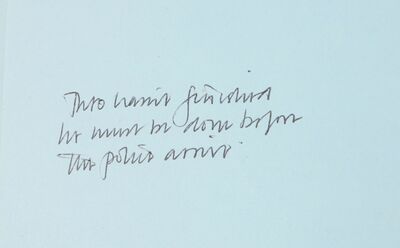 Theo hasn't finished
he must be done before
the police arrive.